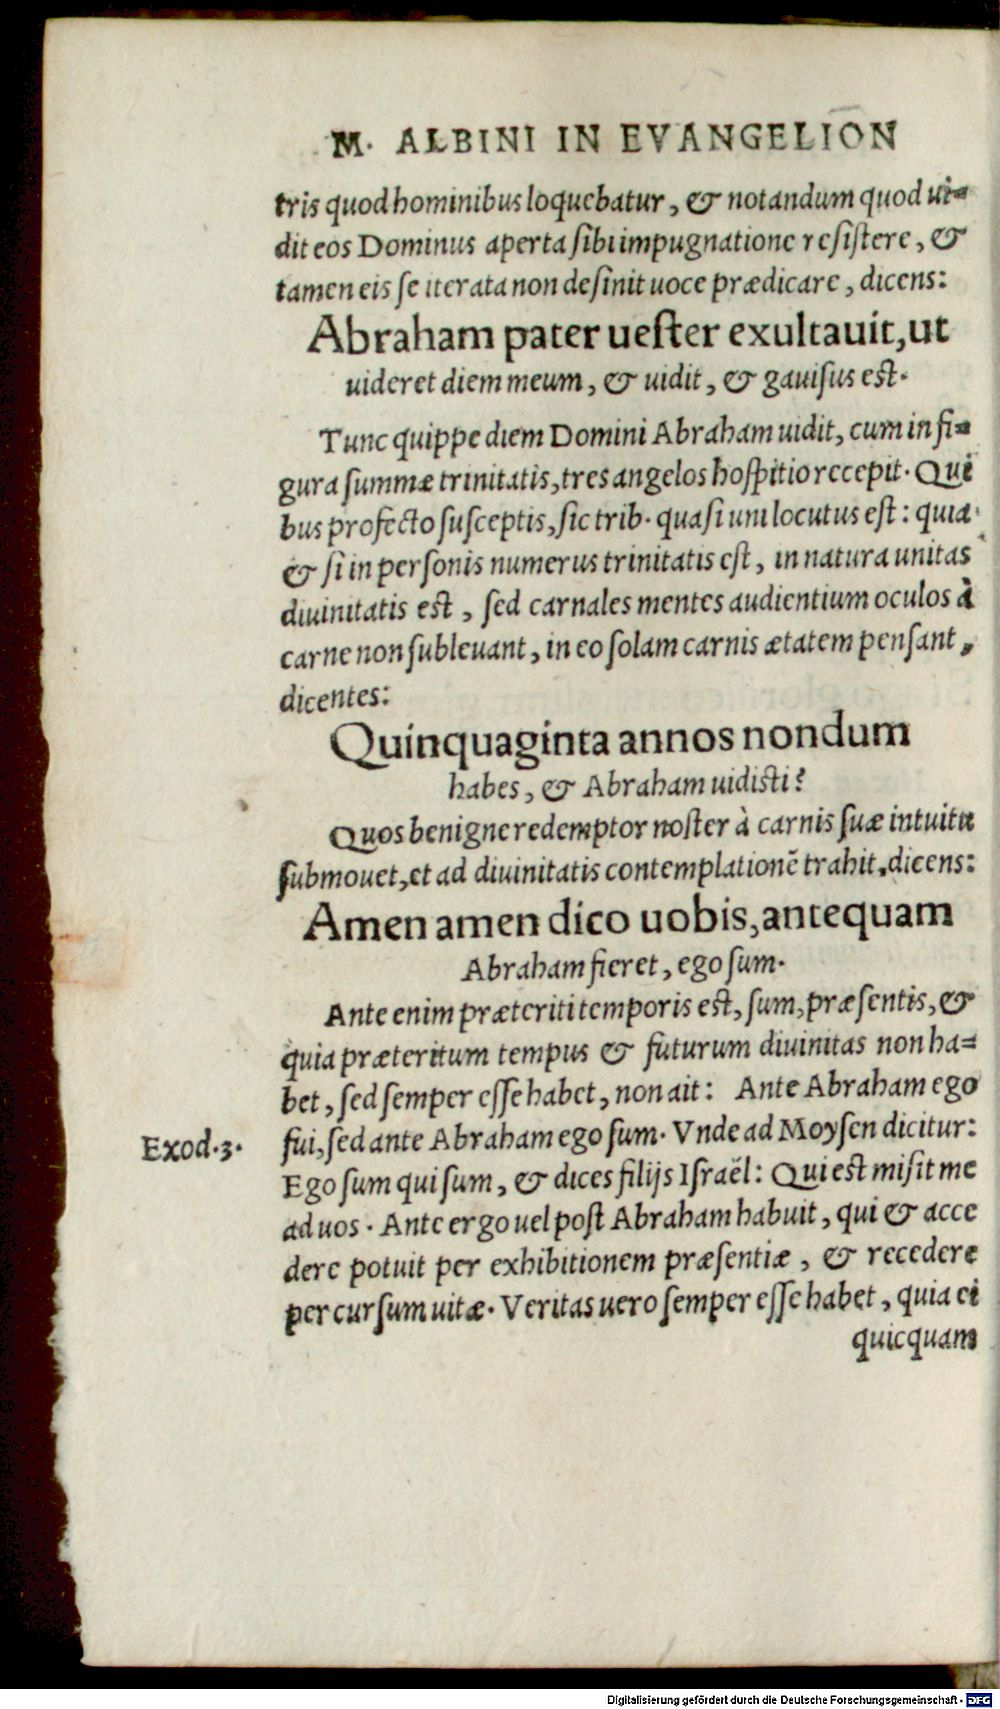 M. ALBINI IN EVANGELION
tris quod hominibus loquebatur, & notandum quod ui=
dit eos Dominus aperta sibi impugnatione resistere, &
tamen eis se iterata non desinit uoce prædicare, dicens:
Abraham pater uester exultauit, ut
uideret diem meum, & uidit, & gauisus est.
Tunc quippe diem Domini Abraham uidit, cum in fi=
gura summæ trinitatis, tres angelos hospitio recepit. Qui
bus profecto susceptis, sic trib. quasi uni locutus est: quia
& si in personis numerus trinitatis est, in natura unitas
diuinitatis est, sed carnales mentes audientium oculos à
carne non subleuant, in eo solam carnis ætatem pensant,
dicentes:
Quinquaginta annos nondum
habes, & Abraham uidisti?
Quos benigne redemptor noster à carnis suæ intuitu
submouet, et ad diuinitatis contemplationē trahit, dicens:
Amen amen dico uobis, antequam
Abraham fieret, ego sum.
Ante enim præteriti temporis est, sum, præsentis, &
quia præteritum tempus & futurum diuinitas non ha=
bet, sed semper esse habet, non ait: Ante Abraham ego
Exod.3.
fui, sed ante Abraham ego sum. Vnde ad Moysen dicitur:
Ego sum qui sum, & dices filijs Israël: Qui est misit me
ad uos. Ante ergo uel post Abraham habuit, qui & acce
dere potuit per exhibitionem præsentiæ, & recedere
per cursum uitæ. Veritas uero semper esse habet, quia ei
quicquam
Digitalisierung gefördert durch die Deutsche Forschungsgemeinschaft - DFG